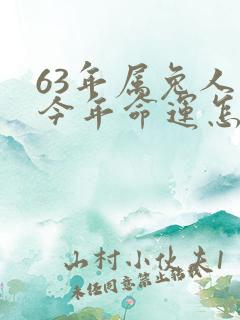 63年属兔人
今年命运怎
山村小伙夫1
未经同意禁止转载